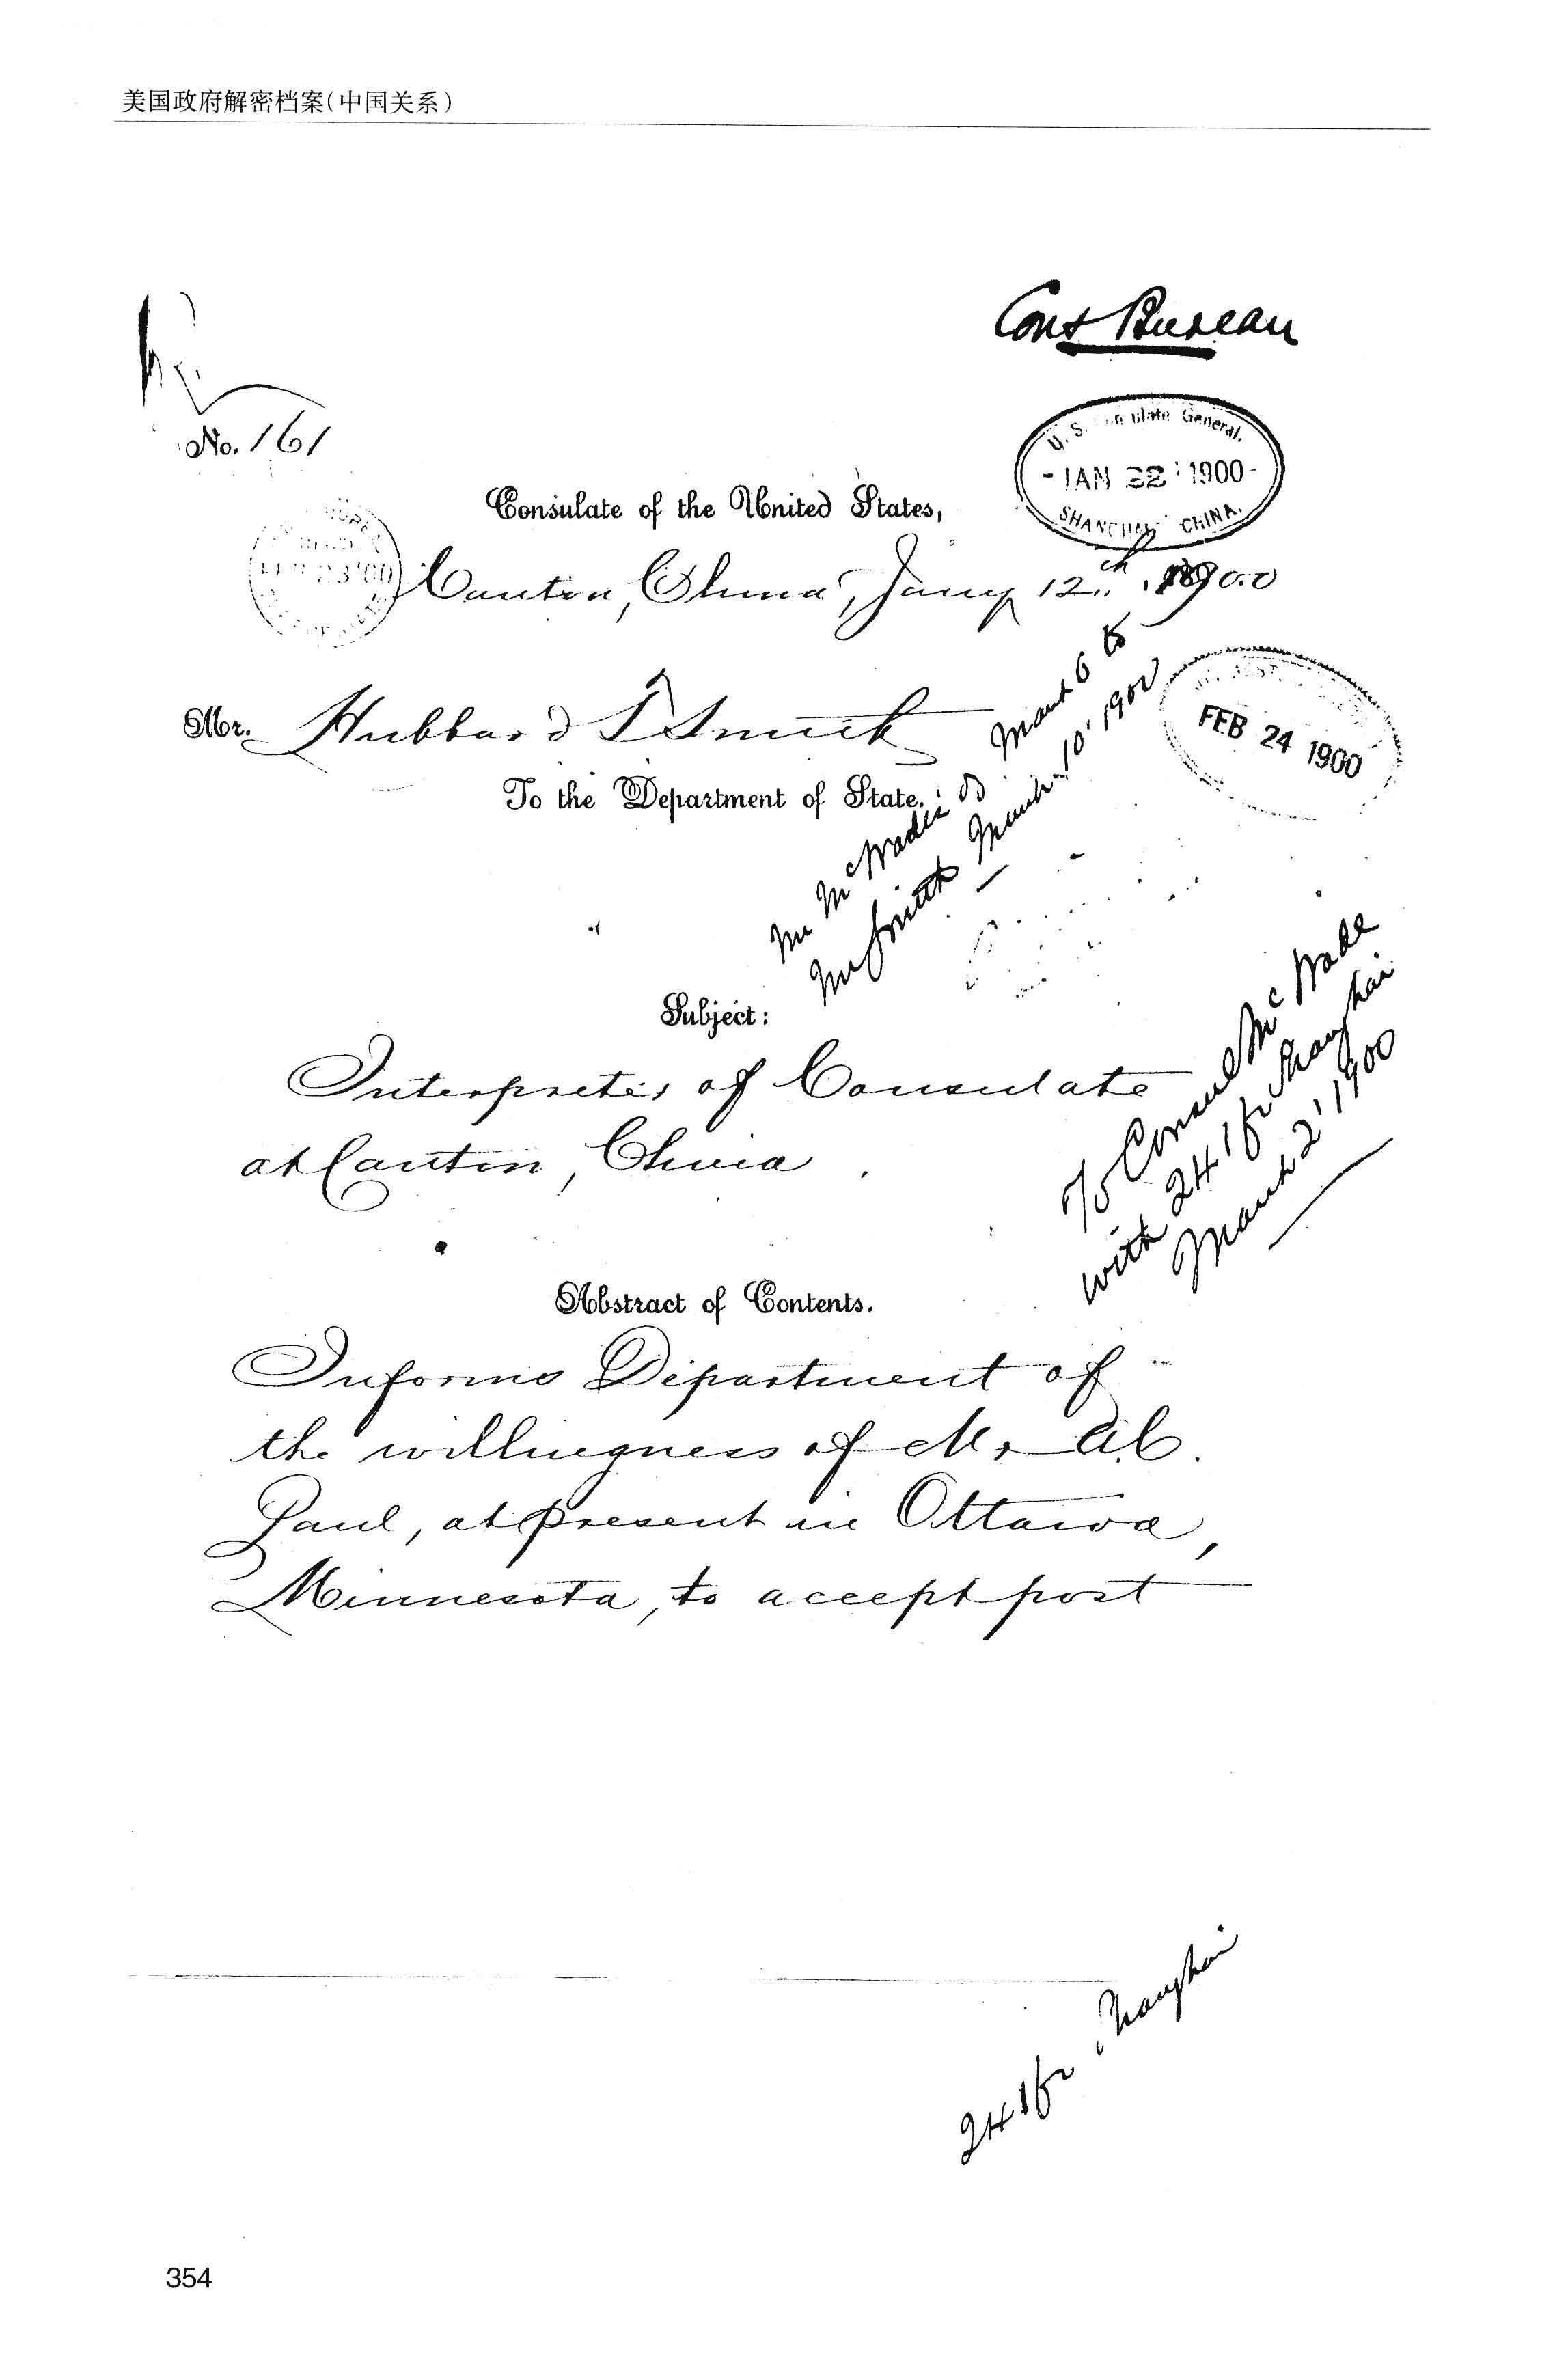 美国政府解密档案(中国关系)
Cons Bureau
No. 161
U. S. Consulate General.
JAN 22 1900
SHANGHAI CHINA.
Consulate of the United States,
Canton, China, Jany 12th, 1900
Mr. Hubbard T Smith
To the Department of State.
FEB 24 1900
Mr McWade's of March 6 to
Mr Smith March 10, 1900
Subject:
Interpreter of Consulate
at Canton, China
To Consul McWade
with 241 fr Shanghai
March 2, 1900
Abstract of Contents.
Informs Department of
the willingness of Mr A.C.
Paul, at present in Ottawa,
Minnesota, to accept post
241 fr Shanghai
354